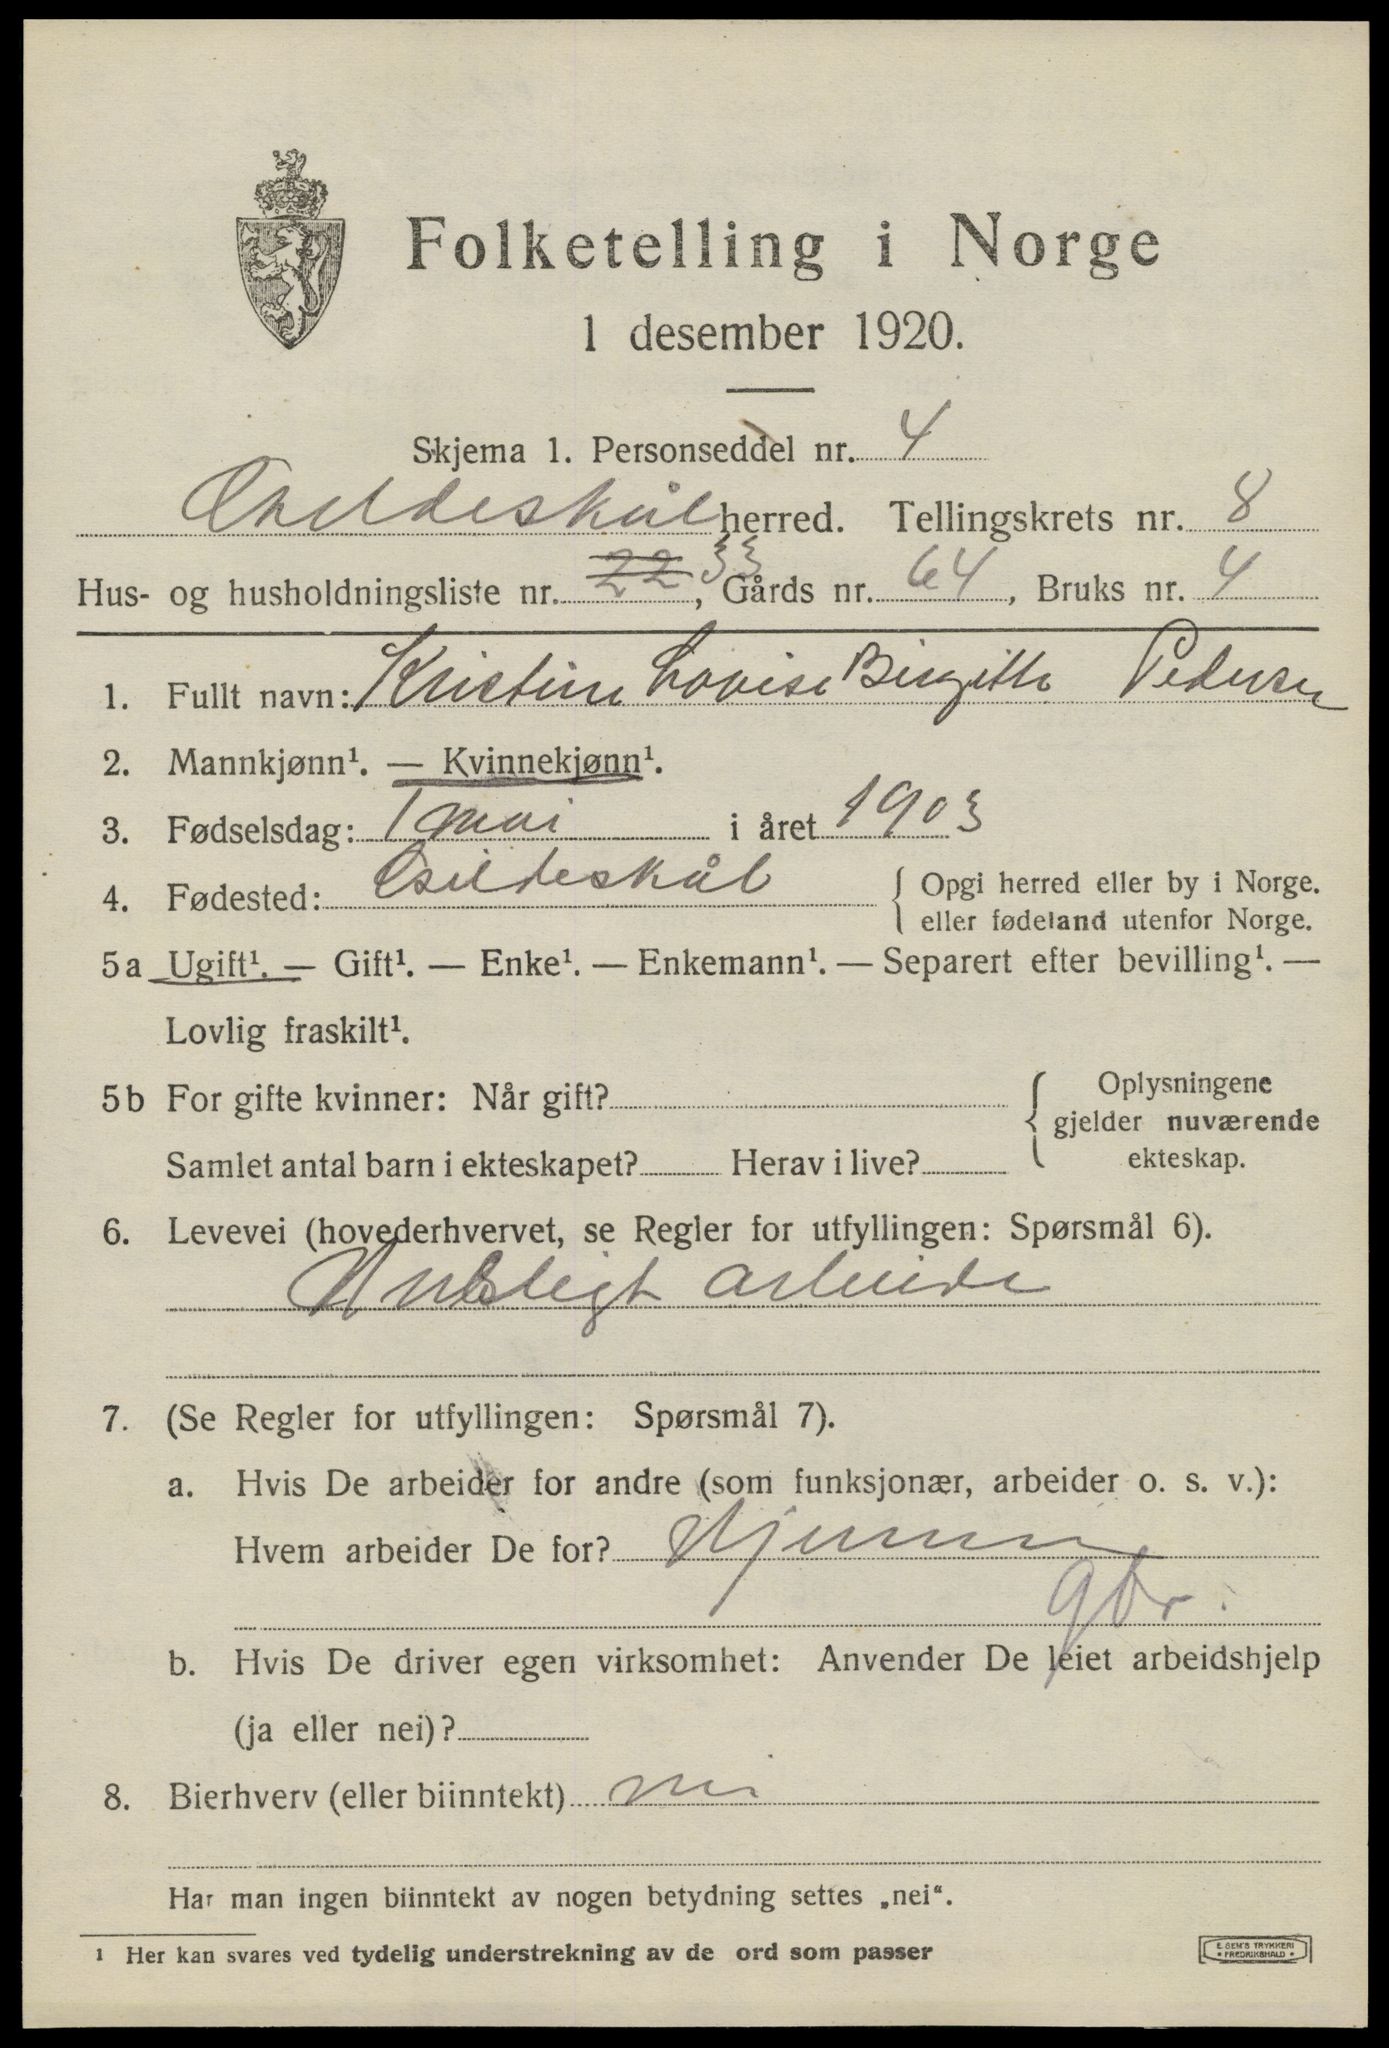 Folketelling i Norge
1 desember 1920.
Skjema 1. Personseddel nr. 4
Gildeskål herred. Tellingskrets nr. 8
Hus- og husholdningsliste nr. 22 33, Gårds nr. 64, Bruks nr. 4
1. Fullt navn: Kristine Lovise Birgitte Pedersen
2. Mannkjønn¹. — Kvinnekjønn¹.
3. Fødselsdag: 1 mai i året 1903
4. Fødested: Gildeskål { Opgi herred eller by i Norge. eller fødeland utenfor Norge.
5a Ugift¹. — Gift¹. — Enke¹. — Enkemann¹. — Separert efter bevilling¹. —
Lovlig fraskilt¹.
5b For gifte kvinner: Når gift? { Oplysningene gjelder nuværende ekteskap.
Samlet antal barn i ekteskapet? Herav i live?
6. Levevei (hovederhvervet, se Regler for utfyllingen: Spørsmål 6).
Husligt arbeide
7. (Se Regler for utfyllingen: Spørsmål 7).
a. Hvis De arbeider for andre (som funksjonær, arbeider o. s. v.):
Hvem arbeider De for? Hjemme
gbr.
b. Hvis De driver egen virksomhet: Anvender De leiet arbeidshjelp
(ja eller nei)?
8. Bierhverv (eller biinntekt) nei
Har man ingen biinntekt av nogen betydning settes „nei“.
¹ Her kan svares ved tydelig understrekning av de ord som passer
E. SEM'S TRYKKERI
FREDRIKSHALD